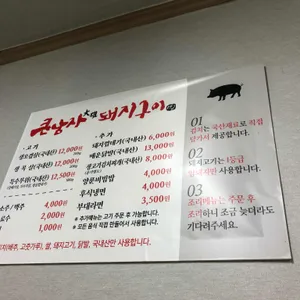 큰남자 大 돼지구이
고기
생오겹살(국내산) 12,000원
생목살(국내산) 12,000원
직수부위(국내산) 12,500원
추가
돼지껍데기(국내산) 6,000원
매운닭발(국내산) 13,000원
생고기김치찌개(국내산) 8,000원
양푼비빔밥 4,000원
후식냉면 4,000원
부대라면 3,500원
소주 / 맥주 4,000
료수 2,000
1,000
※ 추가메뉴는 고기 주문 후 가능합니다.
※ 모든 음식 직접 만들어서 사용합니다.
치(배추, 고춧가루), 쌀, 돼지고기, 닭발, 국내산만 사용합니다.
01
김치는 국산재료로 직접
담가서 제공합니다.
02
돼지고기는 1등급
암돼지만 사용합니다.
03
조리메뉴는 주문 후
조리하니 조금 늦더라도
기다려주세요.